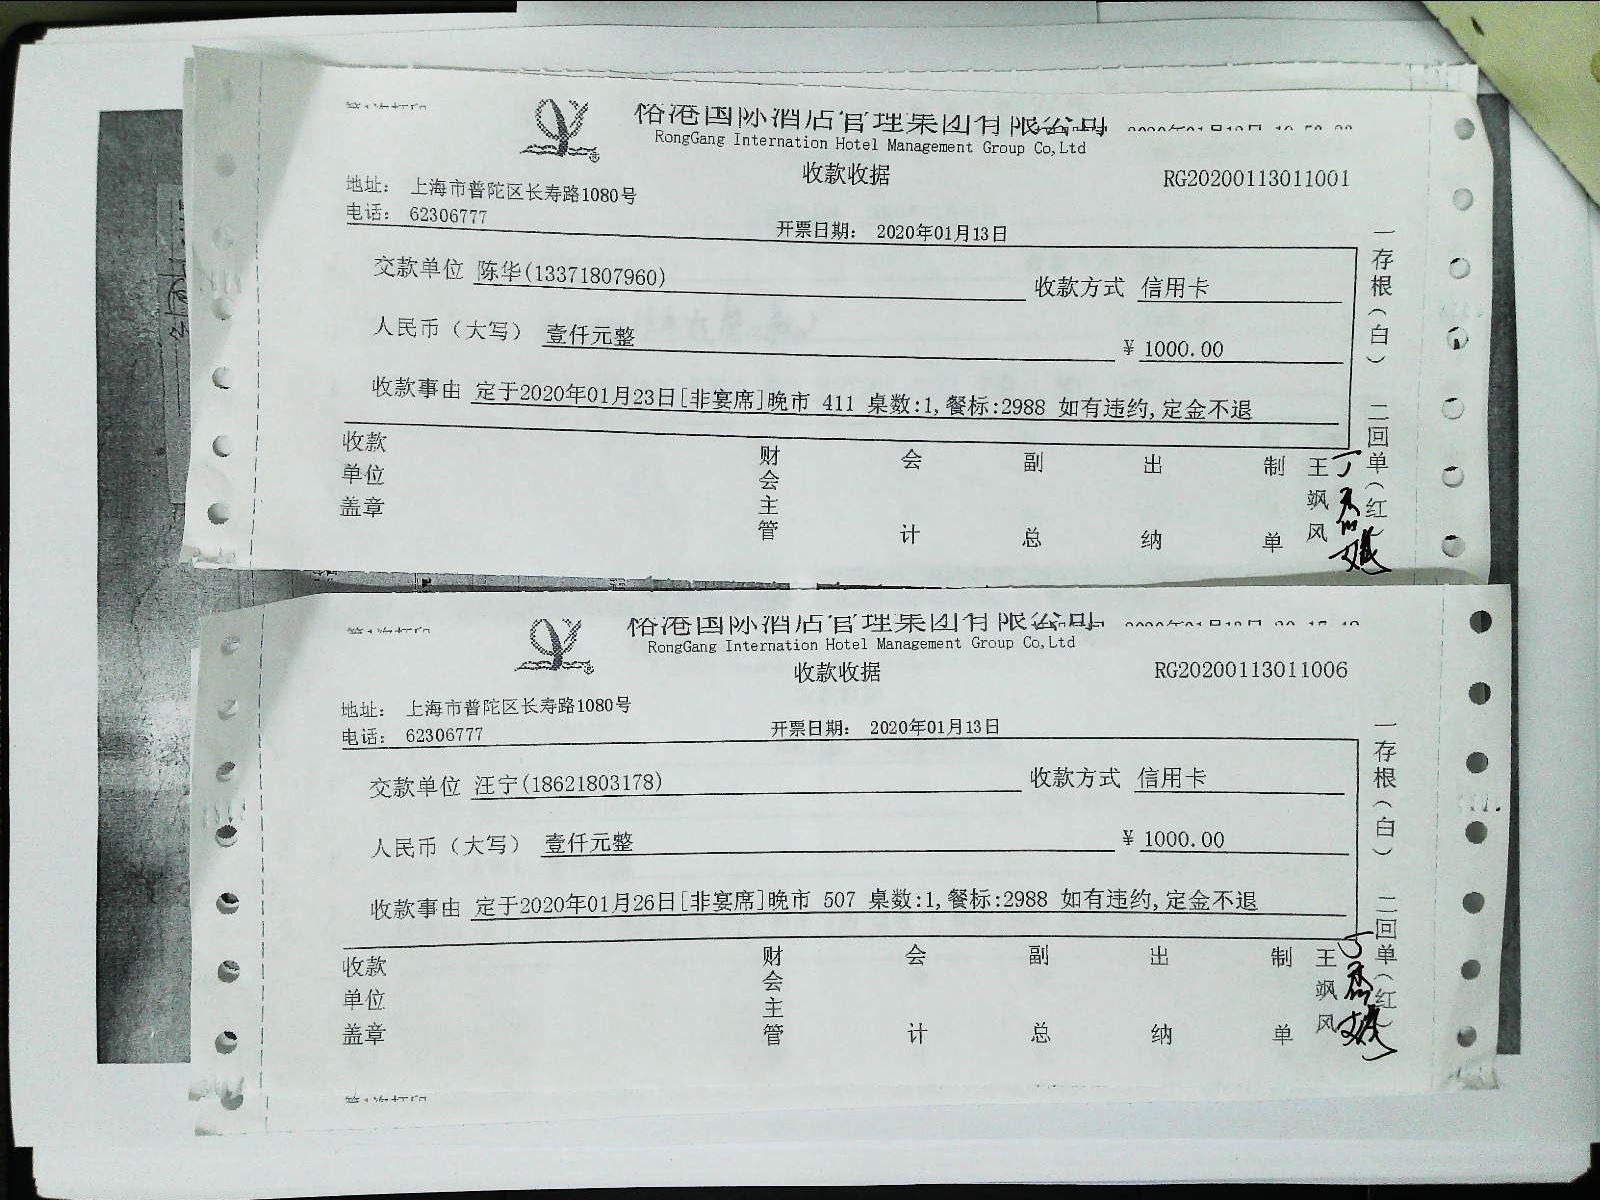 裕港国际酒店管理集团有限公司
RongGang Internation Hotel Management Group Co,Ltd
收款收据
RG20200113011001
地址: 上海市普陀区长寿路1080号
电话: 62306777
开票日期: 2020年01月13日
交款单位 陈华(13371807960)
收款方式 信用卡
人民币（大写） 壹仟元整
¥ 1000.00
收款事由 定于2020年01月23日[非宴席]晚市 411 桌数:1,餐标:2988 如有违约,定金不退
收款单位盖章
财会主管
会计
副总
出纳
制单
王飒风
一存根(白)
二回单(红)
裕港国际酒店管理集团有限公司
RongGang Internation Hotel Management Group Co,Ltd
收款收据
RG20200113011006
地址: 上海市普陀区长寿路1080号
电话: 62306777
开票日期: 2020年01月13日
交款单位 汪宁(18621803178)
收款方式 信用卡
人民币（大写） 壹仟元整
¥ 1000.00
收款事由 定于2020年01月26日[非宴席]晚市 507 桌数:1,餐标:2988 如有违约,定金不退
收款单位盖章
财会主管
会计
副总
出纳
制单
王飒风
一存根(白)
二回单(红)